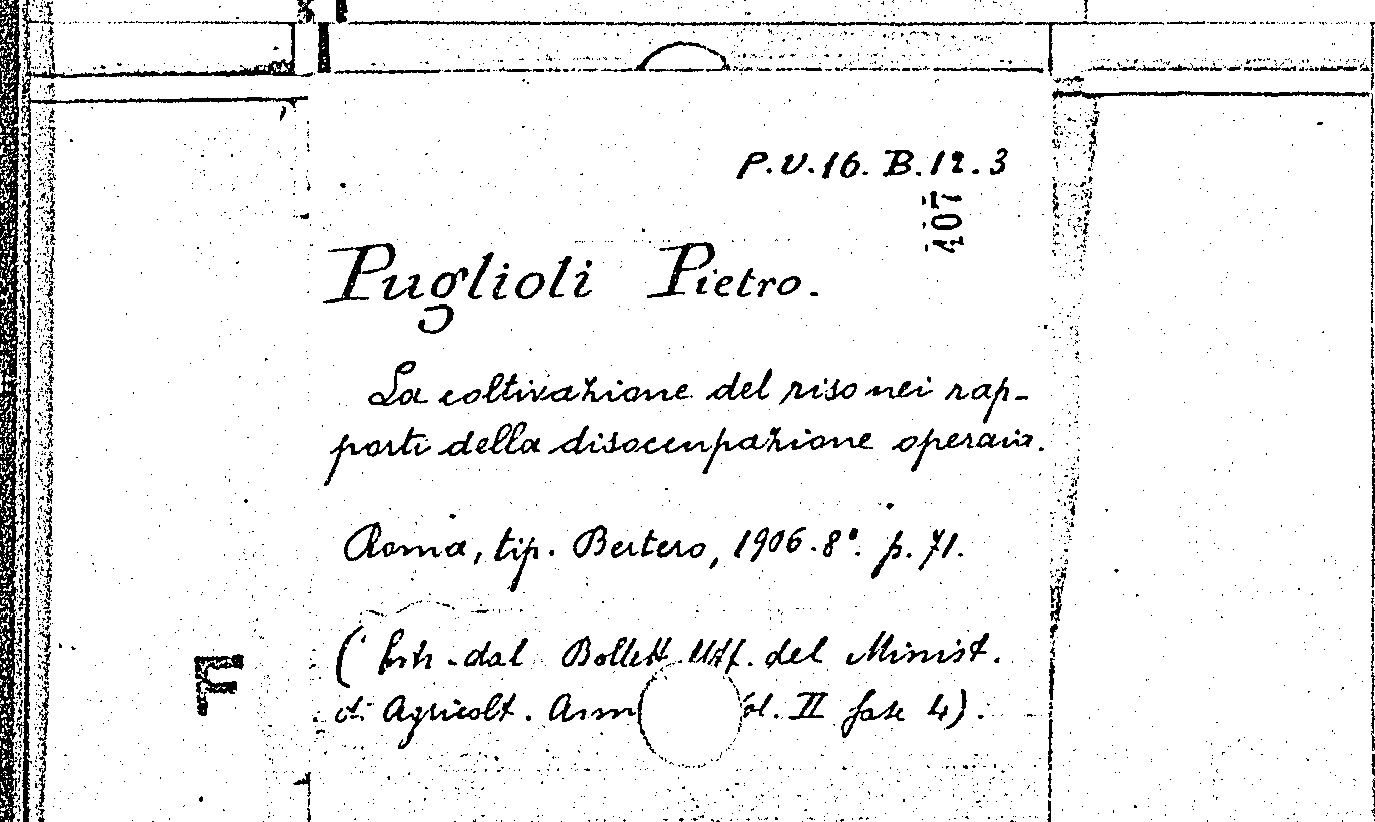 P.V.16. B.12.3
407
Puglioli Pietro.
La coltivazione del riso nei rap-
porti della disoccupazione operaia.
Roma, tip. Bertero, 1906. 8º. p. 71.
( Estr. dal Bollett. Uff. del Minist.
di Agricolt. Ann ol. II fasc 4).